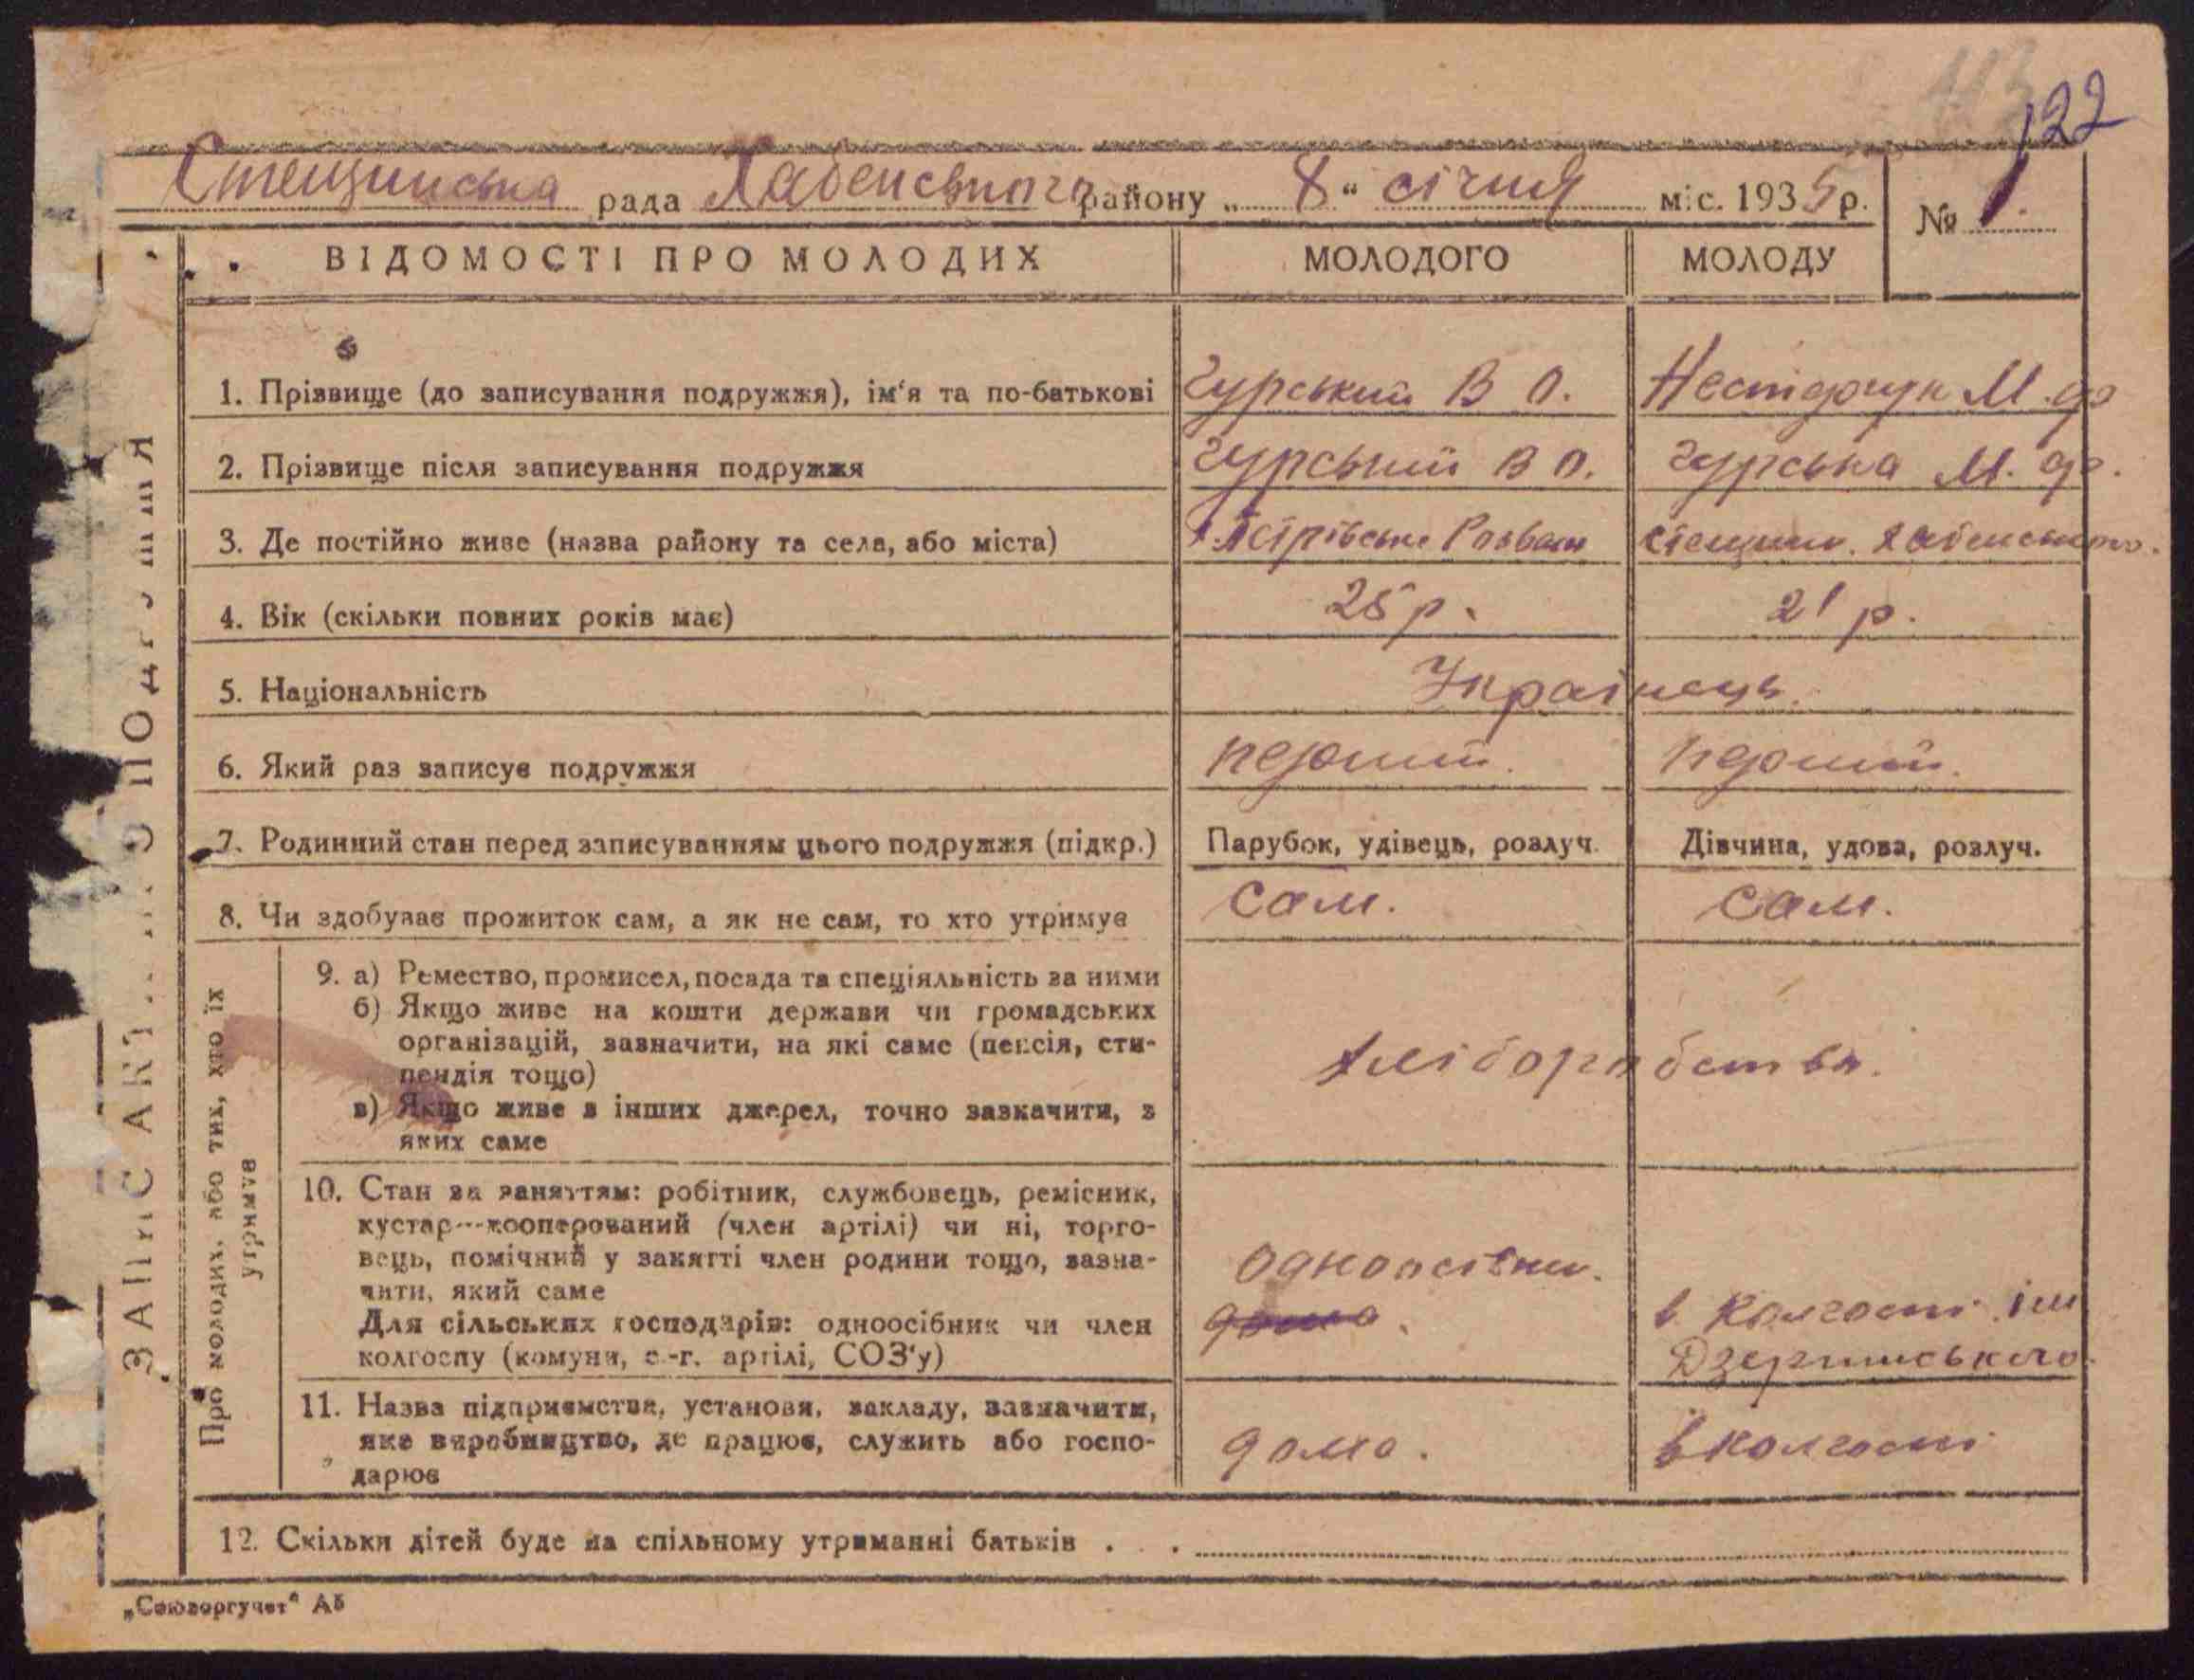 122
Стещинська рада Хабенського району „8“ січня міс. 1935 р.
№ 1.
ВІДОМОСТІ ПРО МОЛОДИХ МОЛОДОГО МОЛОДУ
1. Прізвище (до записування подружжя), ім‘я та по-батькові Гурський В О. Нестерчук М.
2. Прізвище після записування подружжя Гурський В О. Гурська М.
3. Де постійно живе (назва району та села, або міста) Розваж Стещин. Хабенського.
4. Вік (скільки повних років має) 25 р. 21 р.
5. Національність Українець.
6. Який раз записує подружжя перший. перший.
7. Родинний стан перед записуванням цього подружжя (підкр.) Парубок, удівець, розлуч. Дівчина, удова, розлуч.
8. Чи здобуває прожиток сам, а як не сам, то хто утримує сам. сам.
ЗАПИС АКТ ПО ПОДРУЖЖЯ
Про молодих, або тих, хто їх утримує
9. а) Ремество, промисел, посада та спеціяльність за ними
б) Якщо живе на кошти держави чи громадських
організацій, зазначити, на які саме (пенсія, сти-
пендія тощо)
в) Якщо живе з інших джерел, точно зазначити, з
яких саме
хліборобство.
10. Стан за заняттям: робітник, службовець, ремісник,
кустар—кооперований (член артілі) чи ні, торго-
вець, помічний у занятті член родини тощо, зазна-
чити, який саме
Для сільських господарів: одноосібник чи член
колгоспу (комуни, с.-г. артілі, СОЗ‘у)
одноосібни.
дома.
в колгоспі ім
Дзержинського.
11. Назва підприємства, установи, закладу, зазначити,
яке виробництво, де працює, служить або госпо-
дарює
дома. в колгоспі
12. Скільки дітей буде на спільному утриманні батьків . . .
„Союзоргучет“ АБ